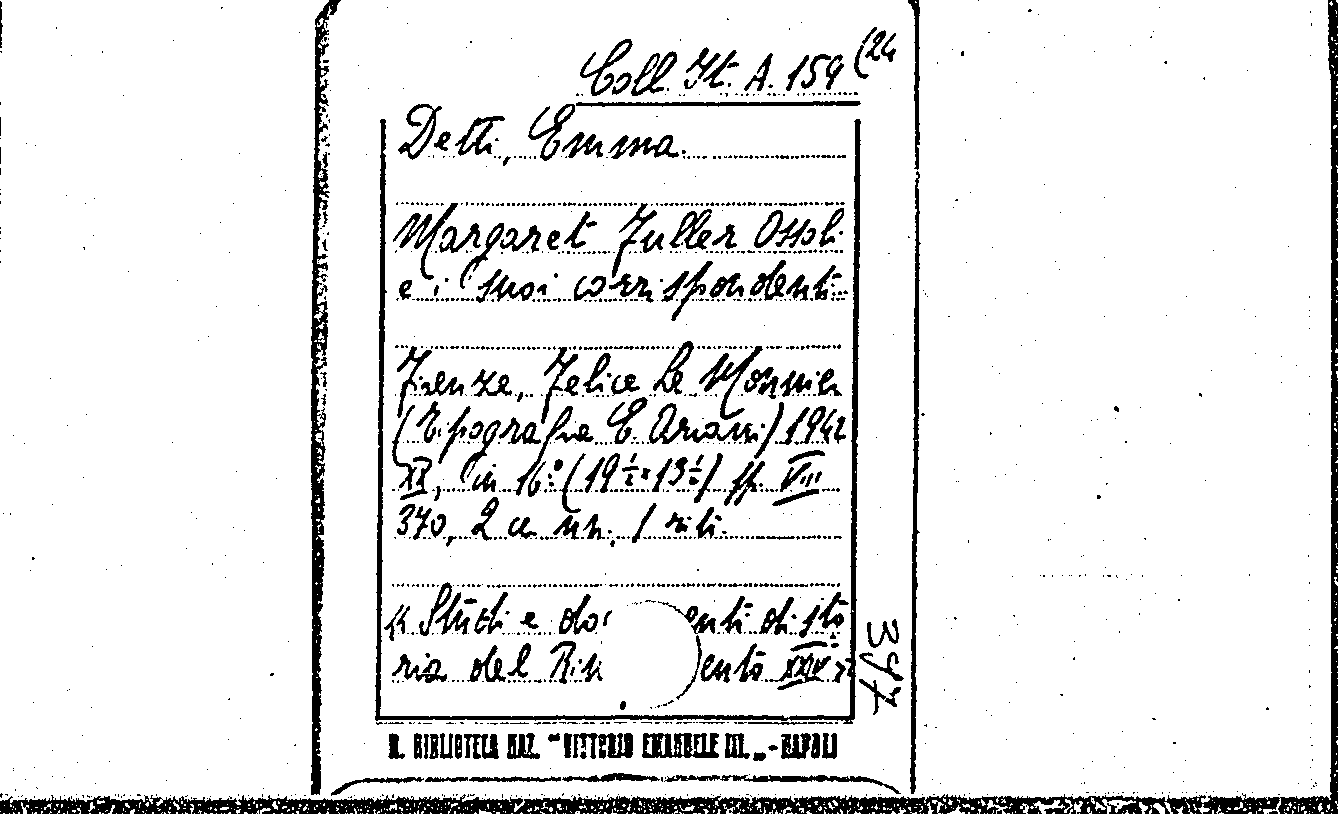 Coll. It. A. 159 (24
Detti, Emma.
Margaret Fuller Ossoli
e i suoi corrispondenti
Firenze, Felice Le Monnier
(Tipografia E. Ariani) 1942
XX, in 16.° (19 ½ x 13 ½) pp. VIII
370, 2 cc. nn., 1 ritr.
« Studi e do enti di sto
ria del Ris ento XXIV
397
R. BIBLIOTECA NAZ. "VITTORIO EMANUELE III." - NAPOLI